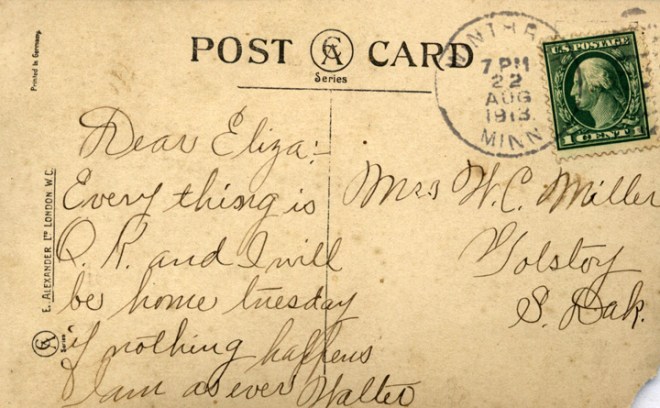 POST CA CARD
Series
Printed in Germany.
E. ALEXANDER LTD LONDON W.C.
CA
Series
7 PM
22
AUG
1913
MINN
U.S. POSTAGE
1 CENT 1
Dear Eliza:-
Every thing is
O.K. and I will
be home tuesday
if nothing happens
I am as ever Walter
Mrs W.C. Miller
Tolstoy
S. Dak.